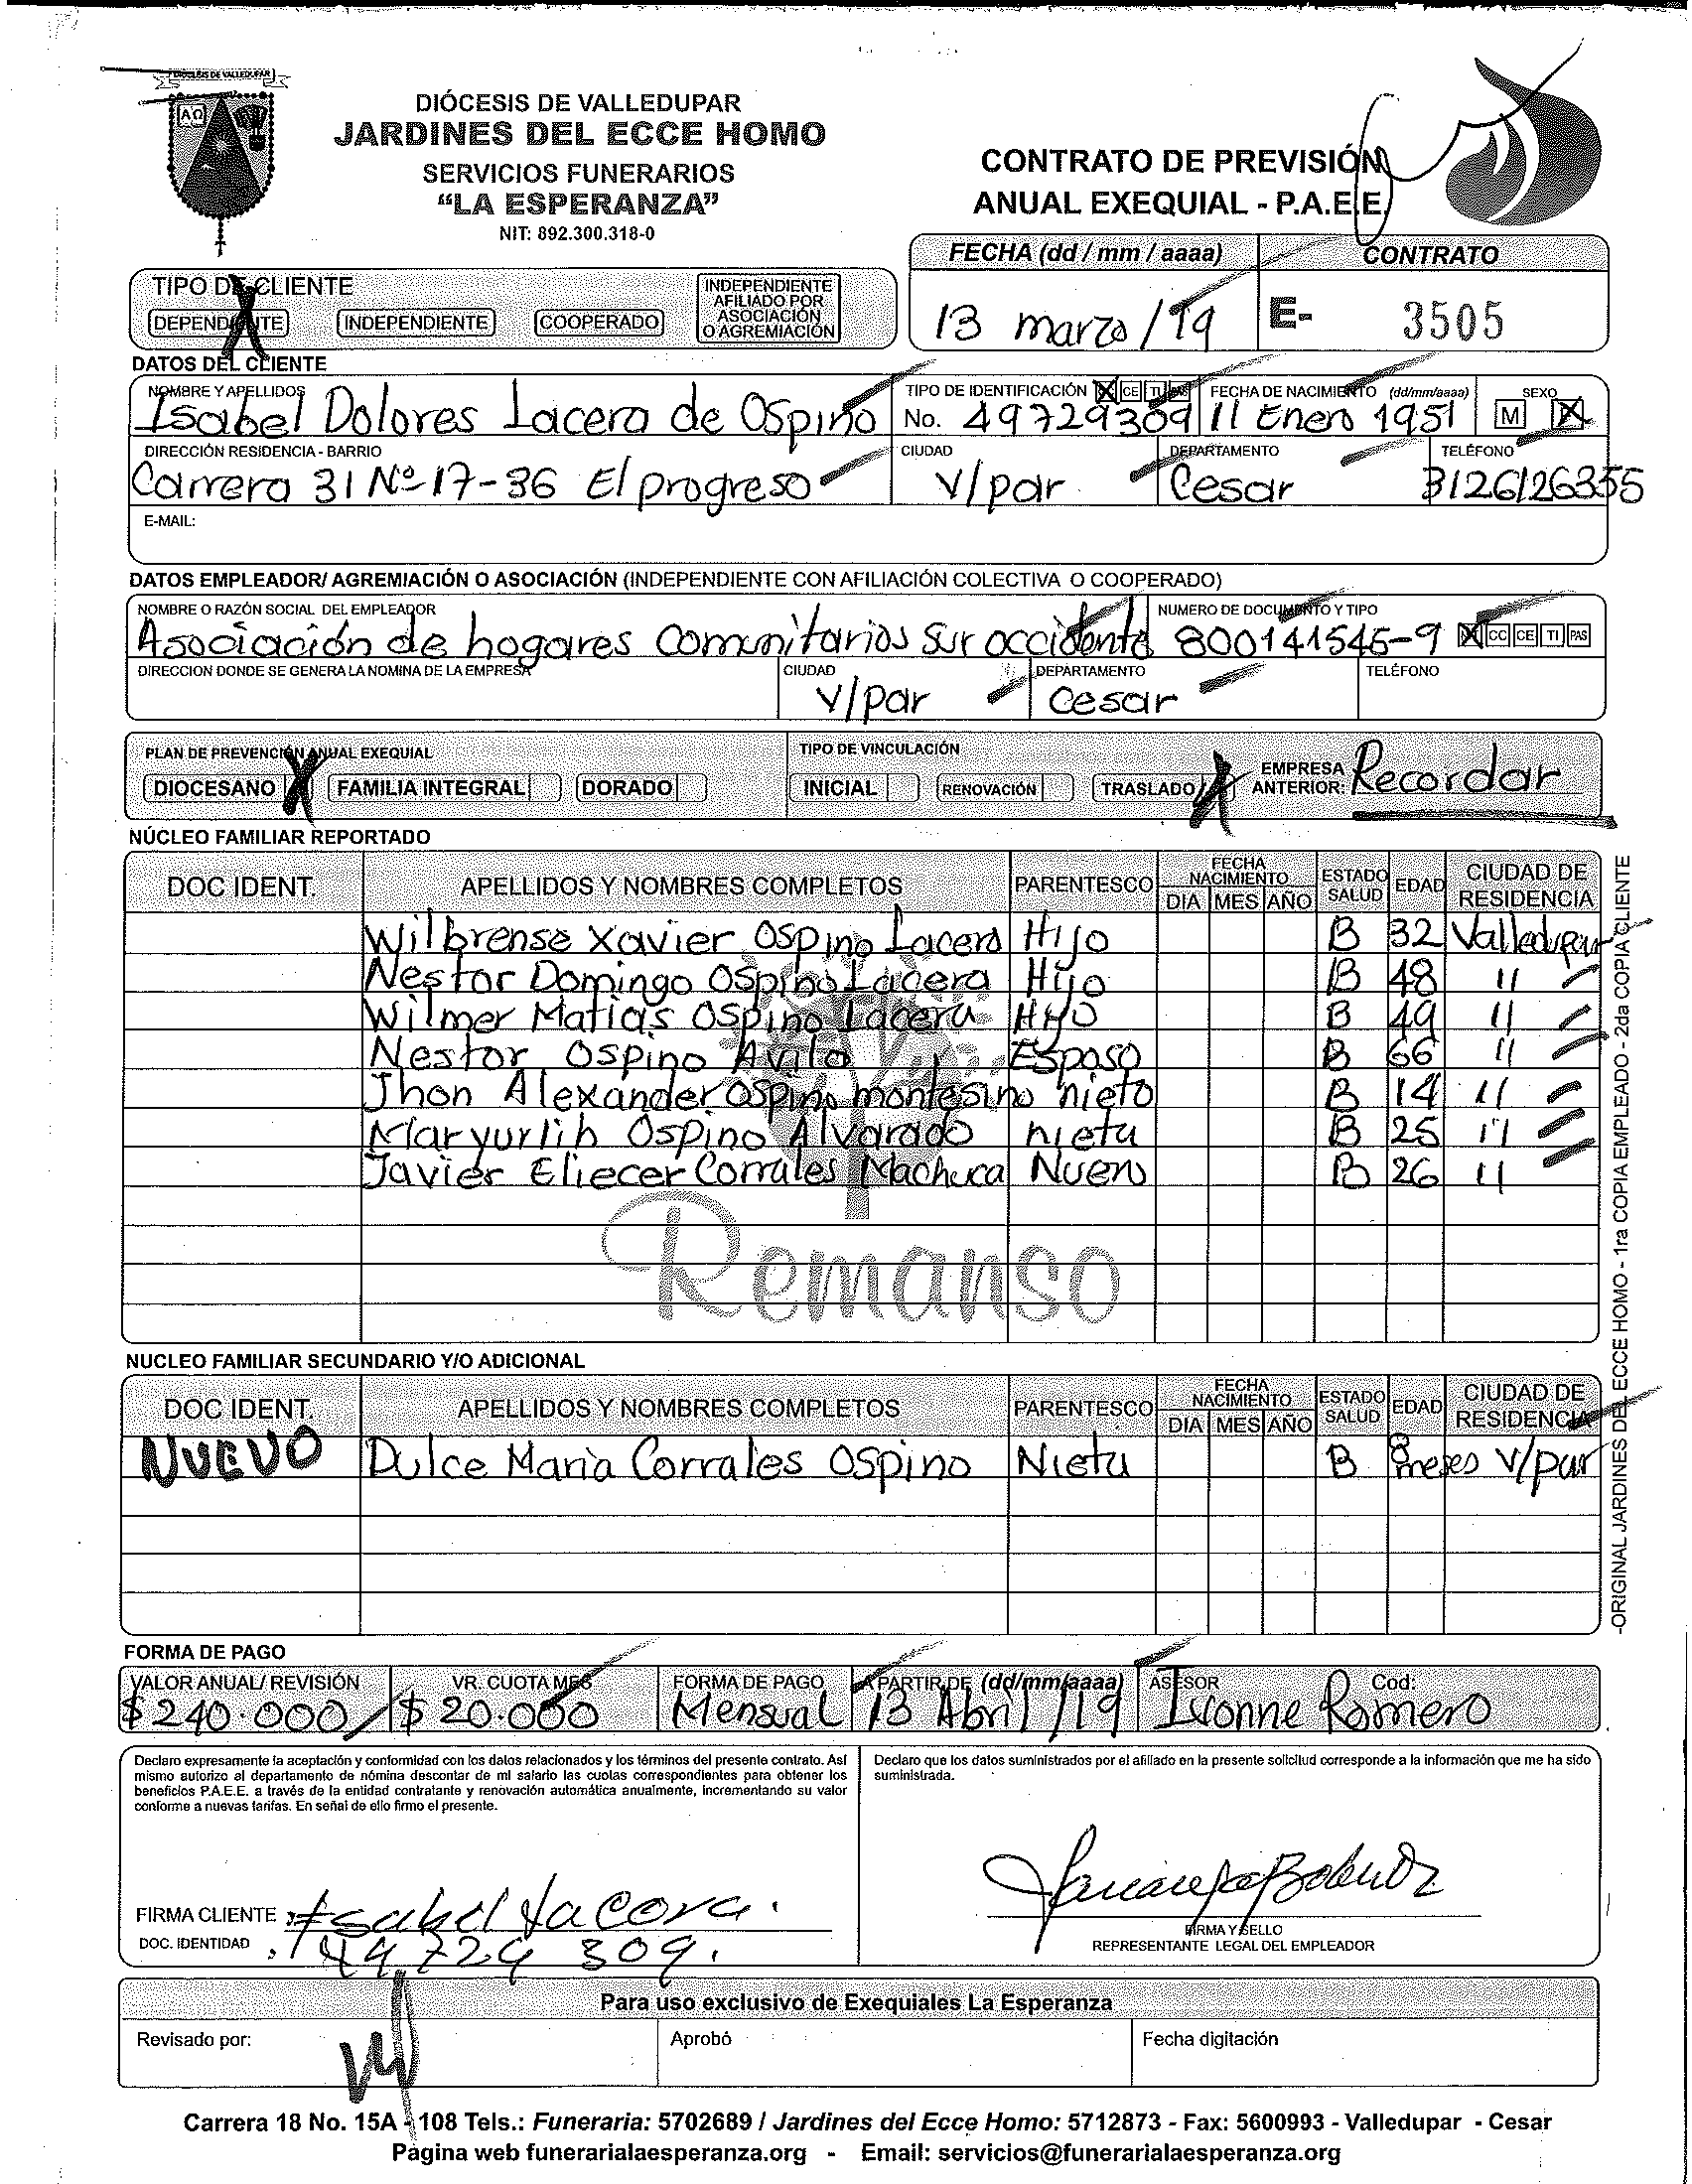 DIÓCESIS DE VALLEDUPAR
ΑΩ
DIÓCESIS DE VALLEDUPAR
JARDINES DEL ECCE HOMO
SERVICIOS FUNERARIOS
“LA ESPERANZA”
NIT: 892.300.318-0
CONTRATO DE PREVISIÓN
ANUAL EXEQUIAL - P.A.E.E.
FECHA (dd / mm / aaaa) CONTRATO
13 marzo / 19 E- 3505
TIPO DE CLIENTE
DEPENDIENTE INDEPENDIENTE COOPERADO INDEPENDIENTE AFILIADO POR ASOCIACIÓN O AGREMIACIÓN
DATOS DEL CLIENTE
NOMBRE Y APELLIDOS TIPO DE IDENTIFICACIÓN CE TI PAS FECHA DE NACIMIENTO (dd/mm/aaaa) SEXO
Isabel Dolores Lacera de Ospino No. 49729309 11 Enero 1951 M X
DIRECCIÓN RESIDENCIA - BARRIO CIUDAD DEPARTAMENTO TELÉFONO
Carrera 31 Nº 17-36 El progreso V/par Cesar 3126126355
E-MAIL:
DATOS EMPLEADOR/ AGREMIACIÓN O ASOCIACIÓN (INDEPENDIENTE CON AFILIACIÓN COLECTIVA O COOPERADO)
NOMBRE O RAZÓN SOCIAL DEL EMPLEADOR NUMERO DE DOCUMENTO Y TIPO
Asociación de hogares Comunitarios Sur occidente 800141545-9 X CC CE TI PAS
DIRECCION DONDE SE GENERA LA NOMINA DE LA EMPRESA CIUDAD DEPARTAMENTO TELÉFONO
V/par Cesar
PLAN DE PREVENCIÓN ANUAL EXEQUIAL TIPO DE VINCULACIÓN
DIOCESANO X FAMILIA INTEGRAL DORADO INICIAL RENOVACIÓN TRASLADO X EMPRESA ANTERIOR: Recordar
NÚCLEO FAMILIAR REPORTADO
DOC IDENT. APELLIDOS Y NOMBRES COMPLETOS PARENTESCO FECHA NACIMIENTO DIA MES AÑO ESTADO SALUD EDAD CIUDAD DE RESIDENCIA
Wilbrense Xavier Ospino Lacera Hijo B 32 Valledupar
Nestor Domingo Ospino Lacera Hijo B 48 "
Wilmer Matias Ospino Lacera Hijo B 49 "
Nestor Ospino Avila Esposo B 66 "
Jhon Alexander Ospino montesino nieto B 14 "
Maryurlih Ospino Alvarado nieta B 25 "
Javier Eliecer Corrales Machuca Nuero B 26 "
Remanso
NUCLEO FAMILIAR SECUNDARIO Y/O ADICIONAL
DOC IDENT. APELLIDOS Y NOMBRES COMPLETOS PARENTESCO FECHA NACIMIENTO DIA MES AÑO ESTADO SALUD EDAD CIUDAD DE RESIDENCIA
NUEVO Dulce Maria Corrales Ospino Nieta B 8 meses V/par
-ORIGINAL JARDINES DEL ECCE HOMO - 1ra COPIA EMPLEADO - 2da COPIA CLIENTE
FORMA DE PAGO
VALOR ANUAL/ REVISIÓN VR. CUOTA MES FORMA DE PAGO A PARTIR DE (dd/mm/aaaa) ASESOR Cod:
$240.000 $20.000 Mensual 13 Abril /19 Ivonne Romero
Declaro expresamente la aceptación y conformidad con los datos relacionados y los términos del presente contrato. Así
mismo autorizo al departamento de nómina descontar de mi salario las cuotas correspondientes para obtener los
beneficios P.A.E.E. a través de la entidad contratante y renovación automática anualmente, incrementando su valor
conforme a nuevas tarifas. En señal de ello firmo el presente.
Declaro que los datos suministrados por el afiliado en la presente solicitud corresponde a la información que me ha sido
suministrada.
FIRMA CLIENTE Isabel Lacera.
DOC. IDENTIDAD 49.729 309.
FIRMA Y SELLO
REPRESENTANTE LEGAL DEL EMPLEADOR
Para uso exclusivo de Exequiales La Esperanza
Revisado por: Aprobó Fecha digitación
Carrera 18 No. 15A - 108 Tels.: Funeraria: 5702689 / Jardines del Ecce Homo: 5712873 - Fax: 5600993 - Valledupar - Cesar
Pagina web funerarialaesperanza.org - Email: servicios@funerarialaesperanza.org